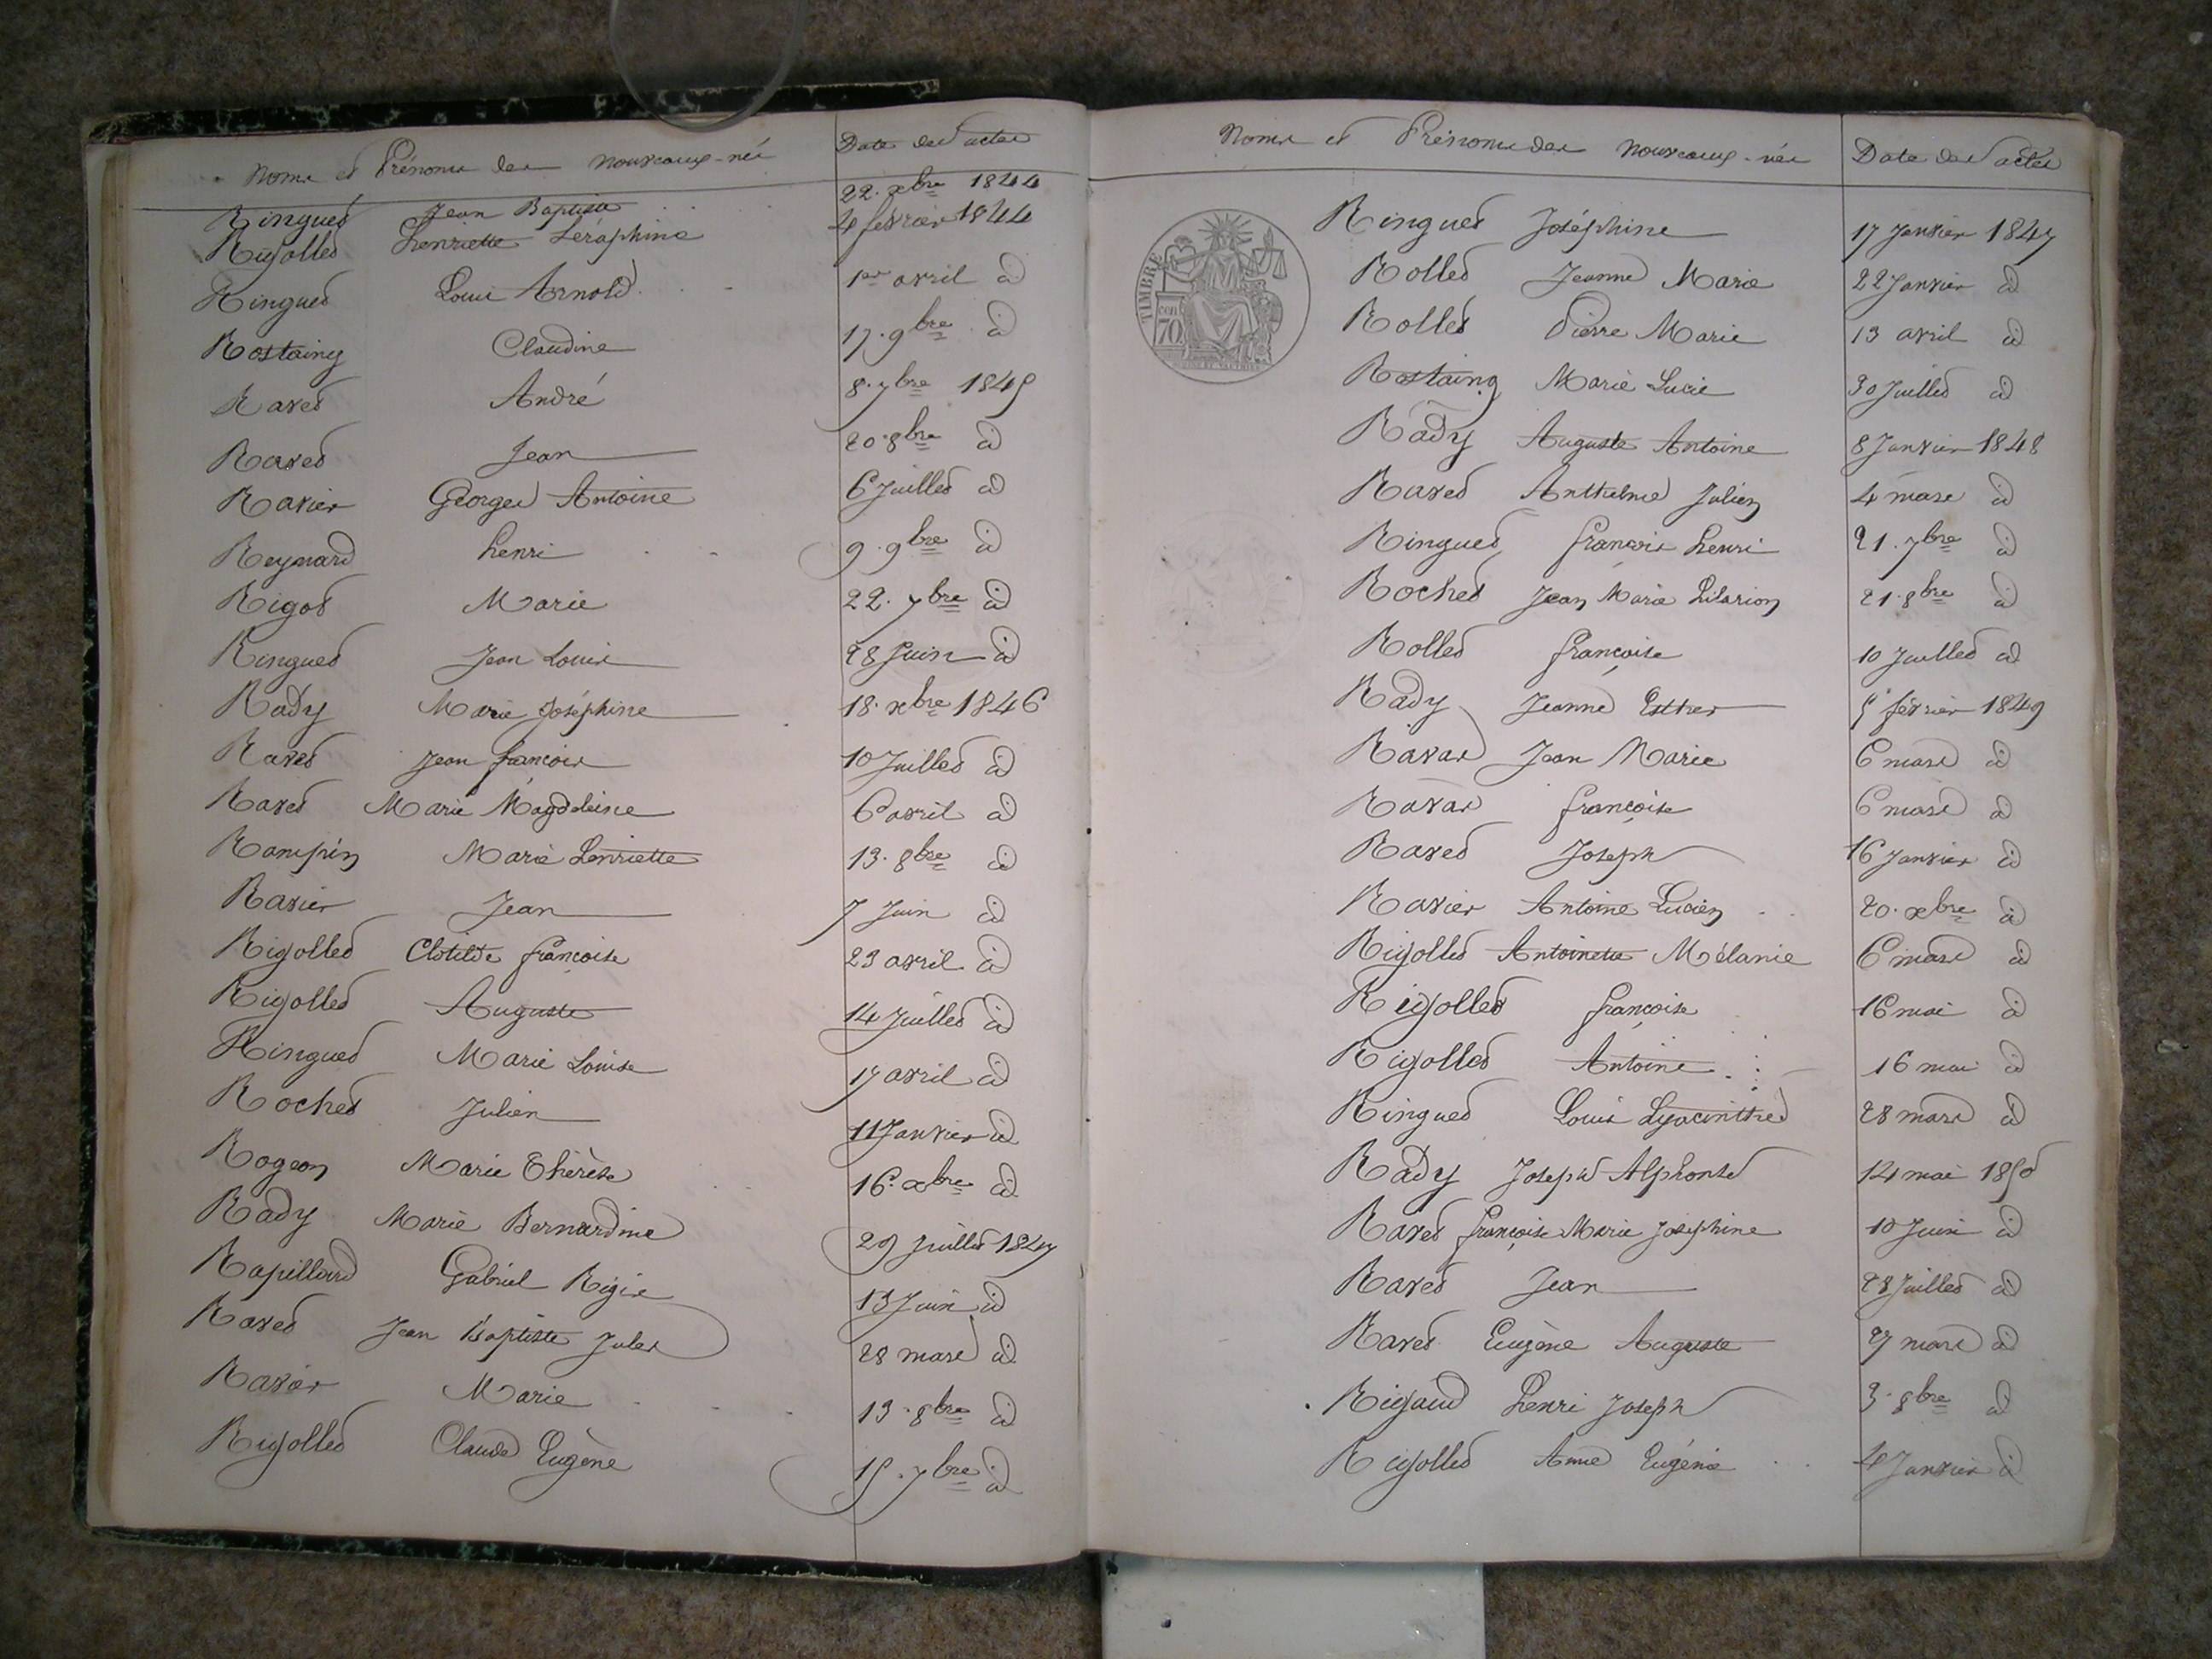 Noms et Prénoms des nouveaux-nés Date des actes
Ringuet Jean Baptiste 22. xbre 1844
Rigollet henriette Séraphine 4 février 1844
Ringuet Louis Arnold 1er avril id
Rostaing Claudine 17. 9bre id
Ravet André 8. 7bre 1845
Ravet Jean 20. 8bre id
Ravier Georges Antoine 6 Juillet id
Reynard henri 9. 9bre id
Rigot Marie 22. 7bre id
Ringuet Jean Louis 28 Juin id
Rady Marie Joséphine 18. xbre 1846
Ravet Jean françois 10 Juillet id
Ravet Marie Magdeleine 6 avril id
Rampin Marie henriette 13. 8bre id
Ravier Jean 7 Juin id
Rigollet Clotilde françoise 23 avril id
Rigollet Auguste 14 Juillet id
Ringuet Marie Louise 17 avril id
Rochet Julien 11 Janvier id
Rogeon Marie Thérèse 16. xbre id
Rady Marie Bernardine 29 Juillet 1847
Rapillard Gabriel Régis 13 Juin id
Ravet Jean Baptiste Jules 28 mars id
Marie 13. 8bre id
Rigollet Claude Eugène 15. 7bre id
Noms et Prénoms des nouveaux-nés Date des actes
TIMBRE
70
Ringuet Joséphine 17 Janvier 1847
Rollet Jeanne Marie 22 Janvier id
Rollet Pierre Marie 13 avril id
Rostaing Marie Lucie 30 Juillet id
Rady Auguste Antoine 8 Janvier 1848
Ravet Anthelme Julien 4 mars id
Ringuet françois henri 21. 7bre id
Rochet Jean Marie hilarion 21. 8bre id
Rollet françoise 10 Juillet id
Rady Jeanne Esther 5 février 1849
Ravas Jean Marie 6 mars id
Ravas françoise 6 mars id
Ravet Joseph 16 Janvier id
Ravier Antoine Lucien 20. xbre id
Rigollet Antoinette Mélanie 6 mars id
Rigollet françoise 16 mai id
Rigollet Antoine 16 mai id
Ringuet Louis hyacinthe 28 mars id
Rady Joseph Alphonse 14 mai 1850
Ravet françoise Marie Joséphine 10 Juin id
Ravet Jean 28 Juillet id
Ravet Eugène Auguste 27 mars id
Rigaud henri Joseph 3. 8bre id
Rigollet Anne Eugénie 4 Janvier id